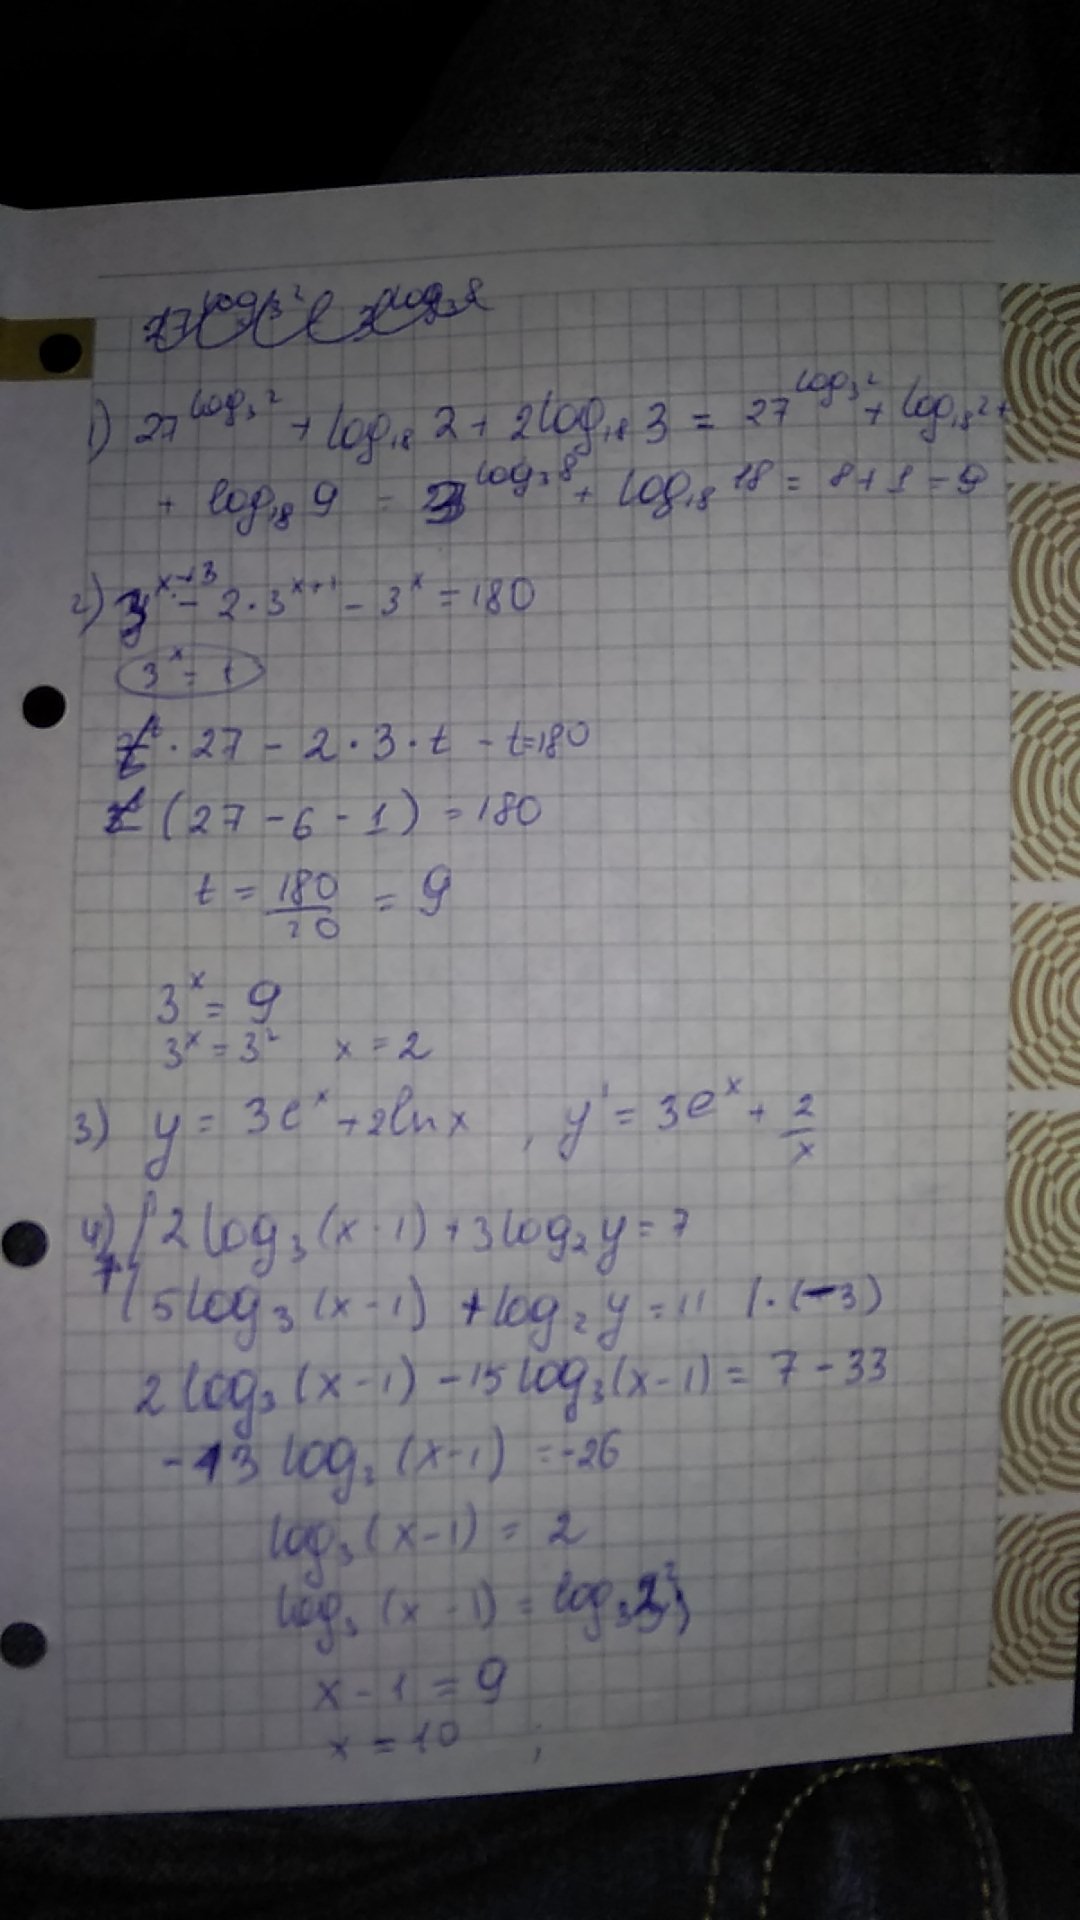 1) 27^{log_3 2} + log_{18} 2 + 2log_{18} 3 = 27^{log_3 2} + log_{18} 2 +
+ log_{18} 9 = 3^{log_3 8} + log_{18} 18 = 8 + 1 = 9
2) 3^{x+3} - 2 · 3^{x+1} - 3^x = 180
3^x = t
t · 27 - 2 · 3 · t - t = 180
t (27 - 6 - 1) = 180
t = 180/20 = 9
3^x = 9
3^x = 3^2 x = 2
3) y = 3e^x + 2ln x , y' = 3e^x + 2/x
4) { 2log_3 (x-1) + 3log_2 y = 7
5log_3 (x-1) + log_2 y = 11 | · (-3)
2log_3 (x-1) - 15log_3 (x-1) = 7 - 33
-13 log_3 (x-1) = -26
log_3 (x-1) = 2
log_3 (x-1) = log_3
x - 1 = 9
x = 10 ;